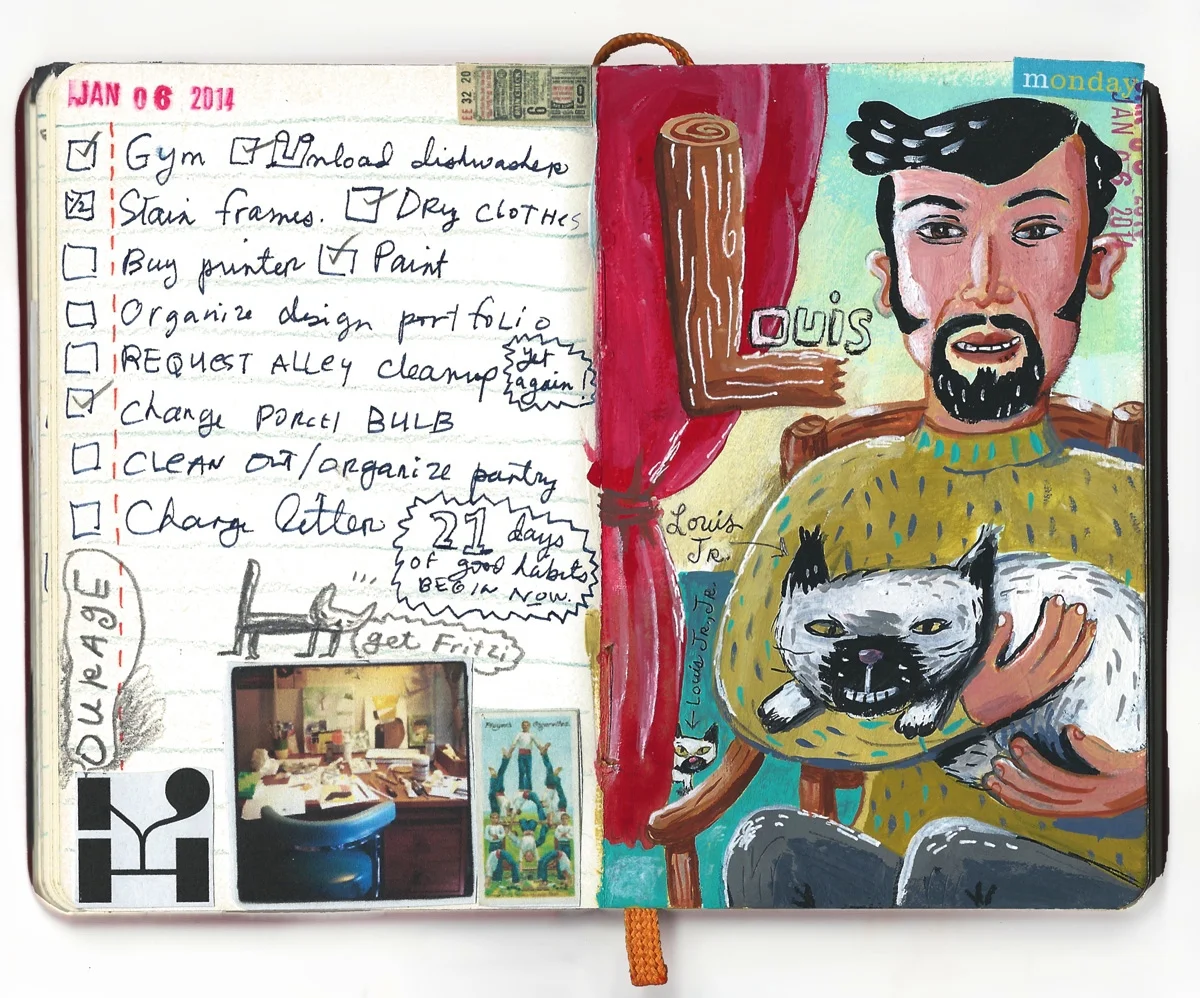 JAN 06 2014
EE 32 20
6
☑ Gym ☑ Unload dishwasher
½ Stain frames. ☑ Dry CLOTHES
☐ Buy printer ☑ Paint
☐ Organize design portfolio
☐ REQUEST ALLEY cleanup
yet
again!
☑ Change PORCH BULB
☐ CLEAN OUT/organize pantry
☐ Change litter
21 days
of good habits
BEGIN NOW.
OURAGE
get Fritzi
K
monday
JAN 06 2014
Louis
Louis
Jr.
←Louis Jr., Jr.